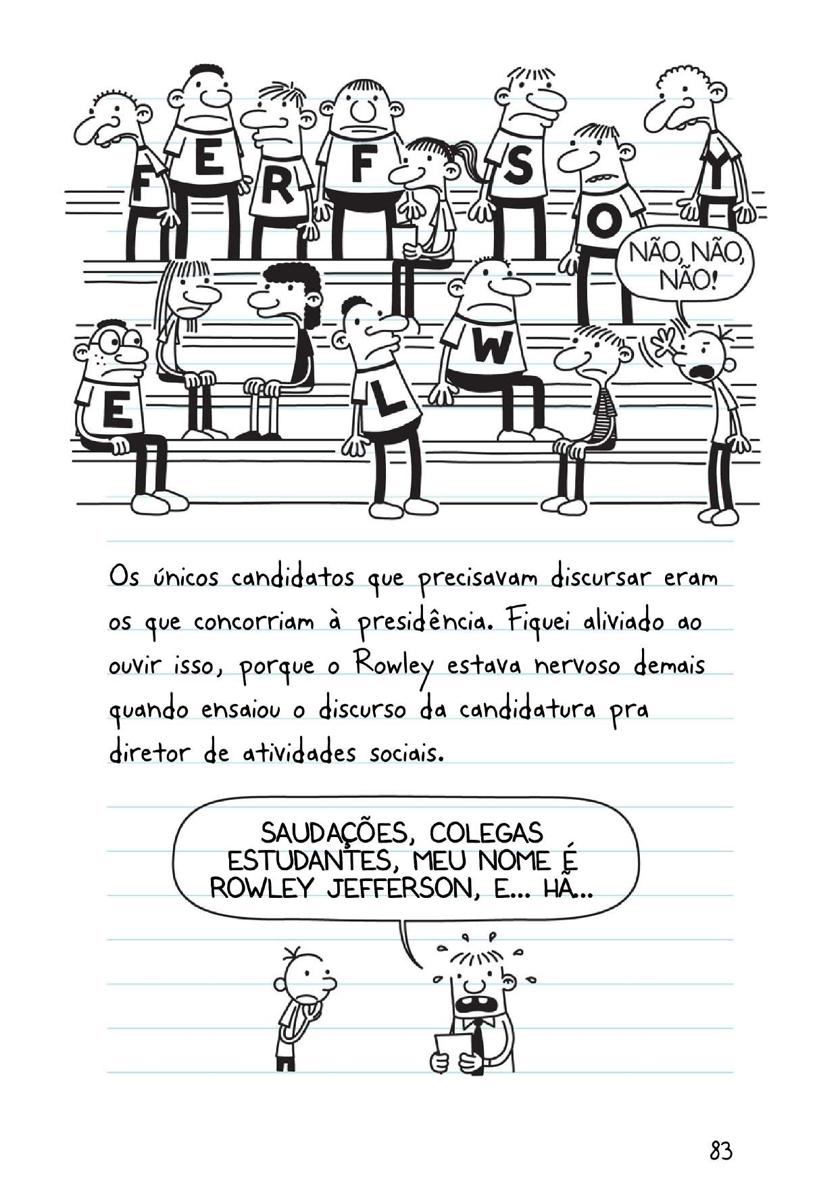 F E R F S O Y
NÃO, NÃO,
NÃO!
E L W
Os únicos candidatos que precisavam discursar eram
os que concorriam à presidência. Fiquei aliviado ao
ouvir isso, porque o Rowley estava nervoso demais
quando ensaiou o discurso da candidatura pra
diretor de atividades sociais.
SAUDAÇÕES, COLEGAS
ESTUDANTES, MEU NOME É
ROWLEY JEFFERSON, E... HÃ...
83